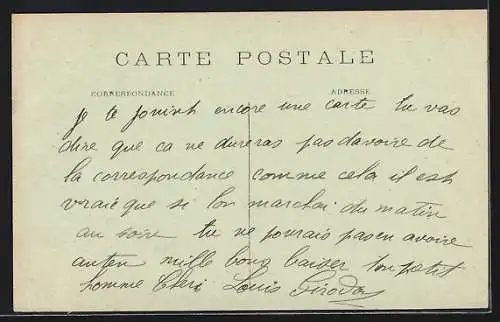 CARTE POSTALE
CORRESPONDANCE
ADRESSE
je te encore une carte tu vas
dire que ca ne dureras pas d'avoire de
la correspondance comme cela il est
vraie que si lon marchai du matin
au soire tu ne pourais pas en avoire
auten mille bons baiser ton petit
homme Cheri Louis